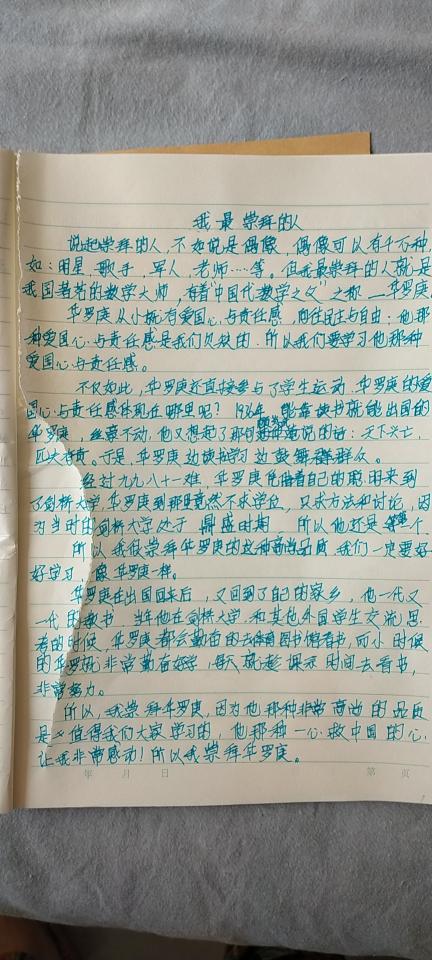 我最崇拜的人
说起崇拜的人，不如说是偶像，偶像可以有千万种，
如：明星、歌手，军人，老师……等。但我最崇拜的人就是
我国著名的数学大师，有着“中国代数学之父”之称——华罗庚。
华罗庚从小就有爱国心与责任感，向往民主与自由；他那
种爱国心与责任感是我们欠缺的.所以我们要学习他那种
爱国心与责任感。
不仅如此，华罗庚还直接参与了学生运动.华罗庚的爱
国心与责任感体现在哪里呢？1936年，能靠读书就能出国的
华罗庚，丝毫不动，他又想起了那句顾炎武说的话：天下兴亡，
匹夫有责。于是，华罗庚边读书学习边鼓舞群众。
经过九九八十一难，华罗庚凭借着自己的聪明来到
了剑桥大学，华罗庚到那里竟然不求学位，只求方法和讨论，因
为当时的剑桥大学处于鼎盛时期 所以他还是个
所以我很崇拜华罗庚的这种高尚品质 我们一定要好
好学习，像华罗庚一样。
华罗庚在出国回来后，又回到了自己的家乡，他一代又
一代的教书 当年他在剑桥大学和其他外国学生交流思
考的时候，华罗庚都会勤奋的去图书馆看书，而小时候
的华罗庚就非常勤奋好学，每天就趁课余时间去看书，
非常努力。
所以，我崇拜华罗庚，因为他那种非常高尚的品质
是值得我们大家学习的，他那种一心救中国的心，
让我非常感动！所以我崇拜华罗庚。
年 月 日 第 页